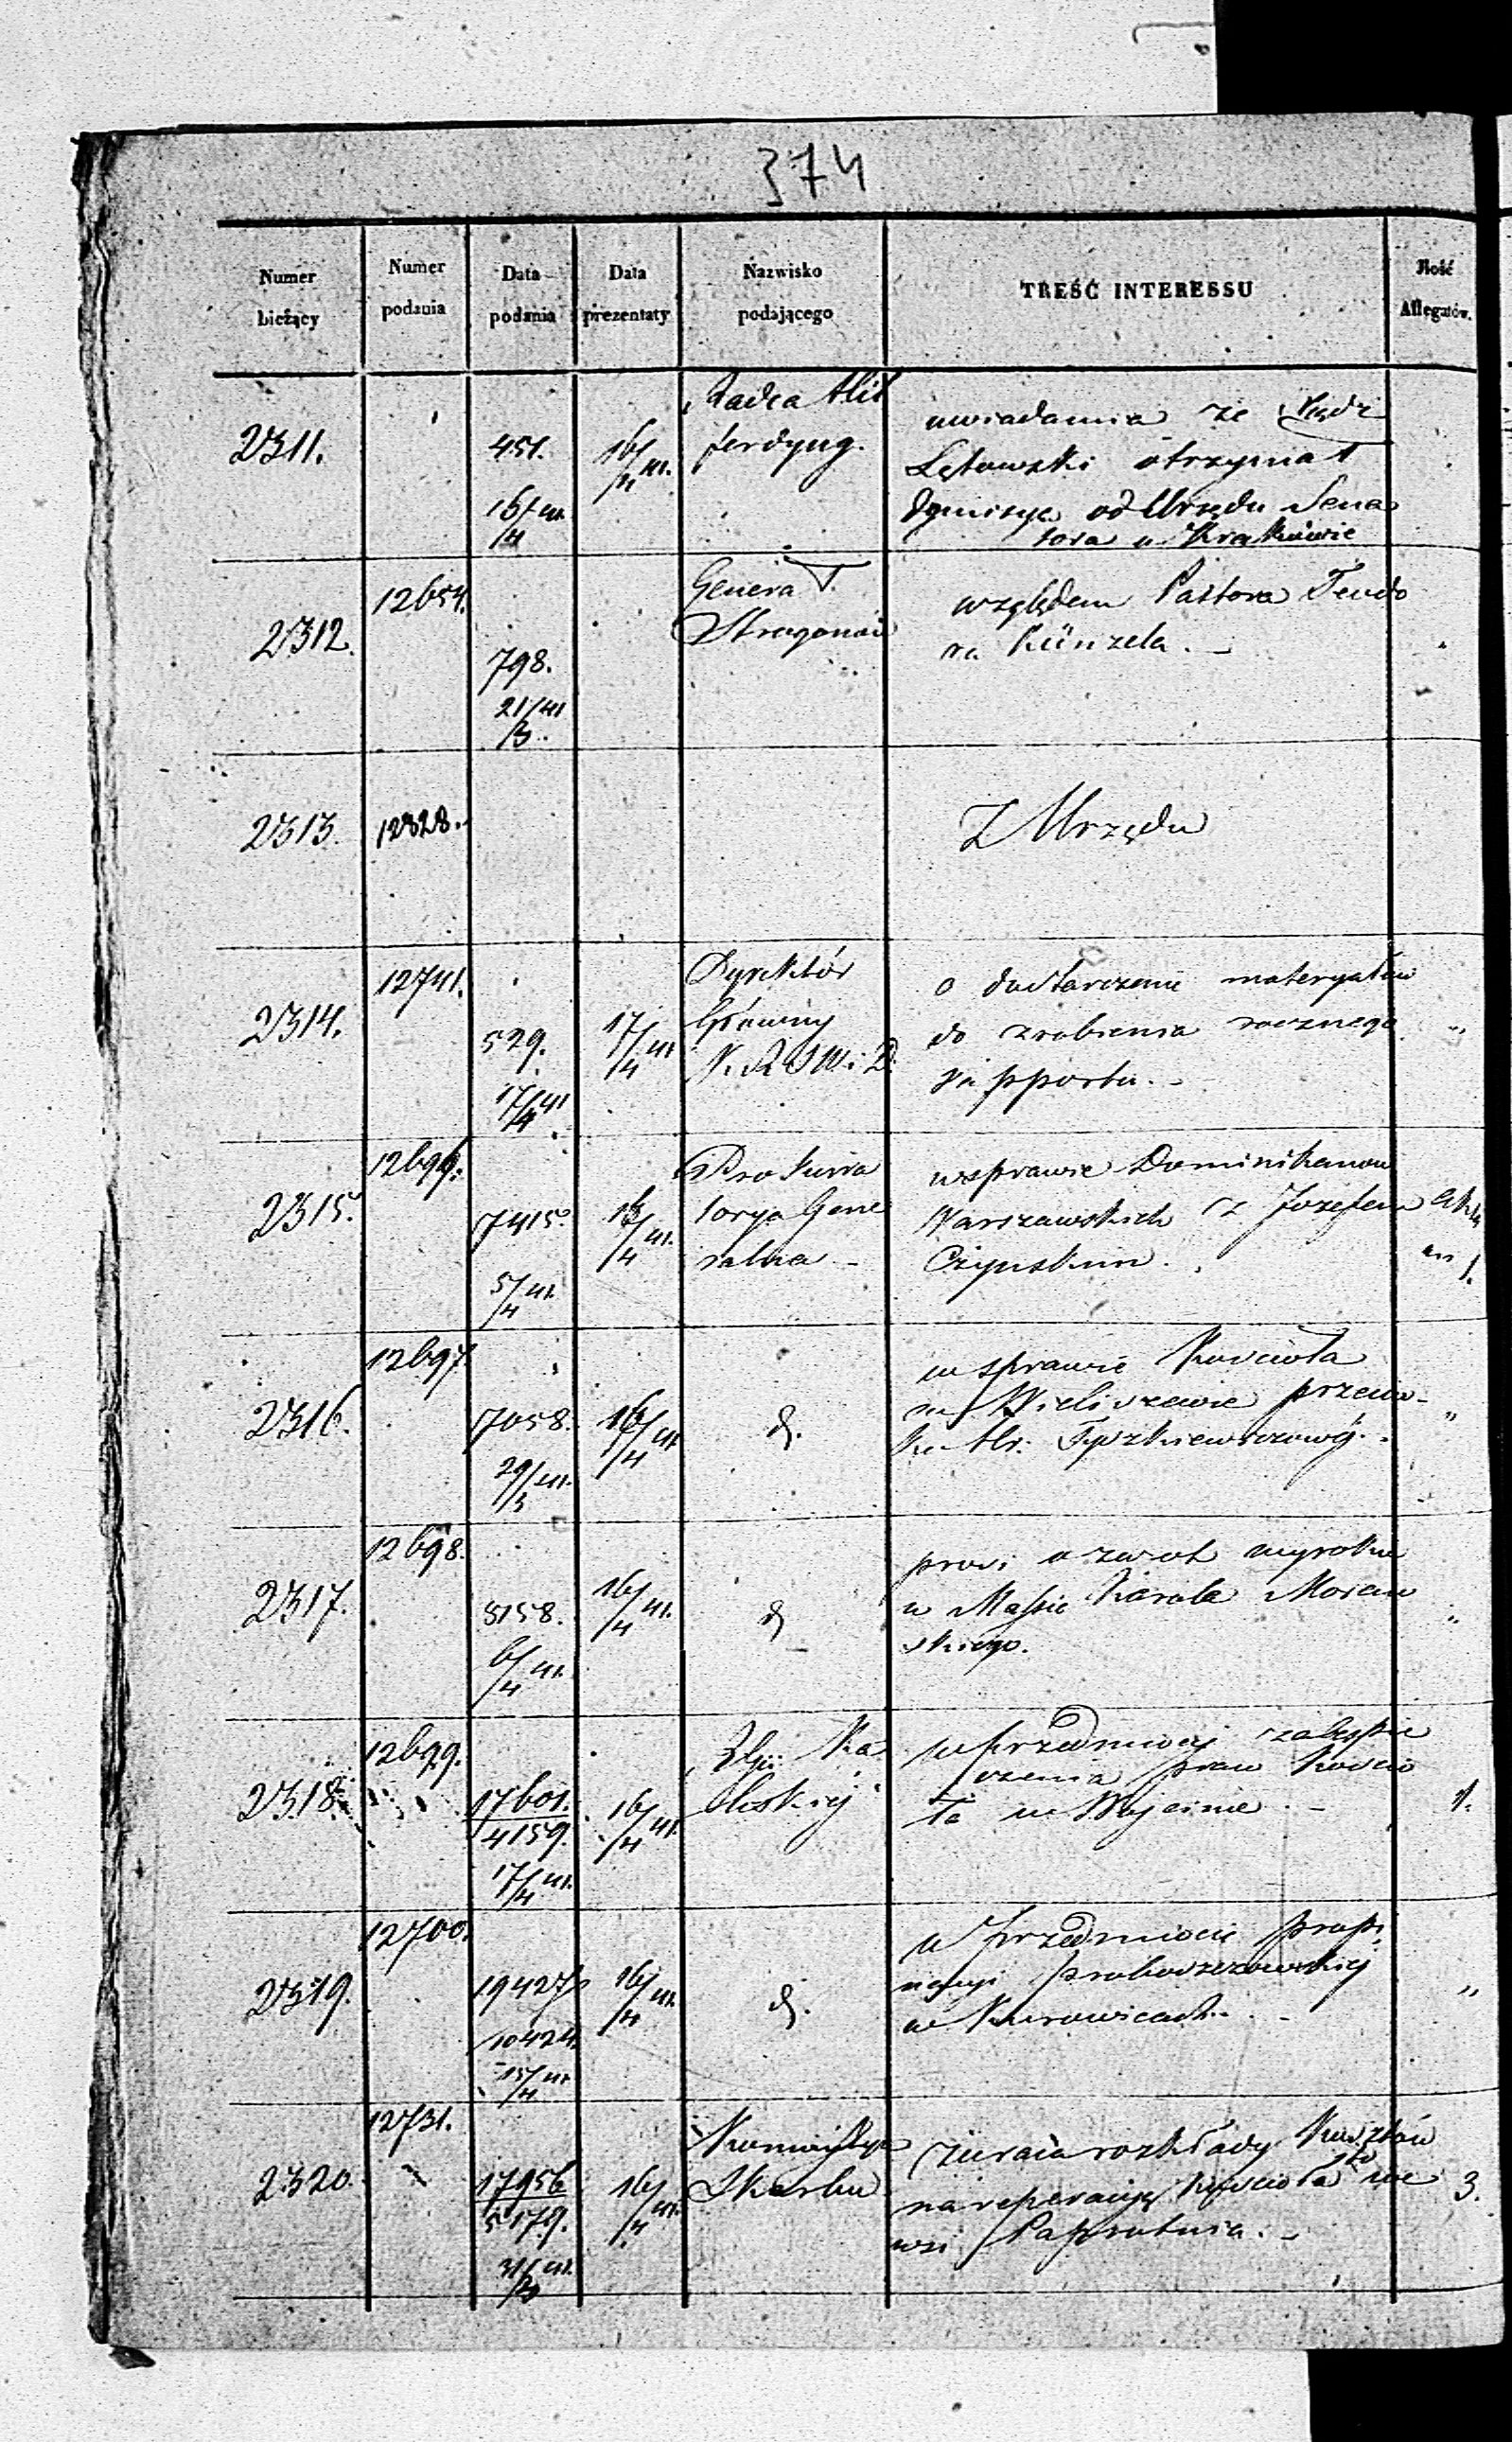 374
Numer bieżący
Numer podania
Data podania
Data prezentaty
Nazwisko podającego
TREŚĆ INTERESSU
Ilość Allegatów.
2311.
451.
16/4 41.
16/4 41.
Radca
uwiadamia że Xiądz
Łętowski otrzymał
dymisyę od Urzędu Sena
tora w Krakowie
2312.
12654.
798.
21/3 41
Generał
względem Pastora Teodo
ra Künzela. -
2313.
12328.
Z Urzędu
2314.
12741.
529.
17/4 41
17/4 41
Dyrektór
Główny
K. R. S. W. i D.
o dostarczenie materyałów
do zrobienia rocznego
rapportu. -
"
2315.
12696.
7415.
5/4 41.
16/4 41.
Prokura
torya Gene
ralna -
w sprawie Dominikanów
Warszawskich z Józefem
Czyńskim.
1.
2316.
12697.
7058.
29/3 41.
16/4 41
d.
w sprawie Kościoła
w Wieliszewie przeciw-
ko Tyszkiewiczowéj. -
"
2317.
12698.
8158.
6/4 41.
16/4 41.
d
prosi o zwrot wyroku
w Massie Karola Moraw
skiego.
"
2318.
12699.
17601.
4159.
17/4 41.
16/4 41.
Ka
liskiej
w przedmiocie zabespie
czenia praw Kościo
ła w Wójcinie. -
1.
2319.
12700.
19427/
10424.
15/4 41.
16/4 41.
d.
w przedmiocie propi
nacyi proboszczowskiej
w Kurowicach. -
"
2320.
12731.
17956
5179.
31/3 41.
16/4 41.
Kommissya
Skarbu
zwraca rozkłady kosztów
na reperacyę kościoła we
wsi Paprotnia. -
3.